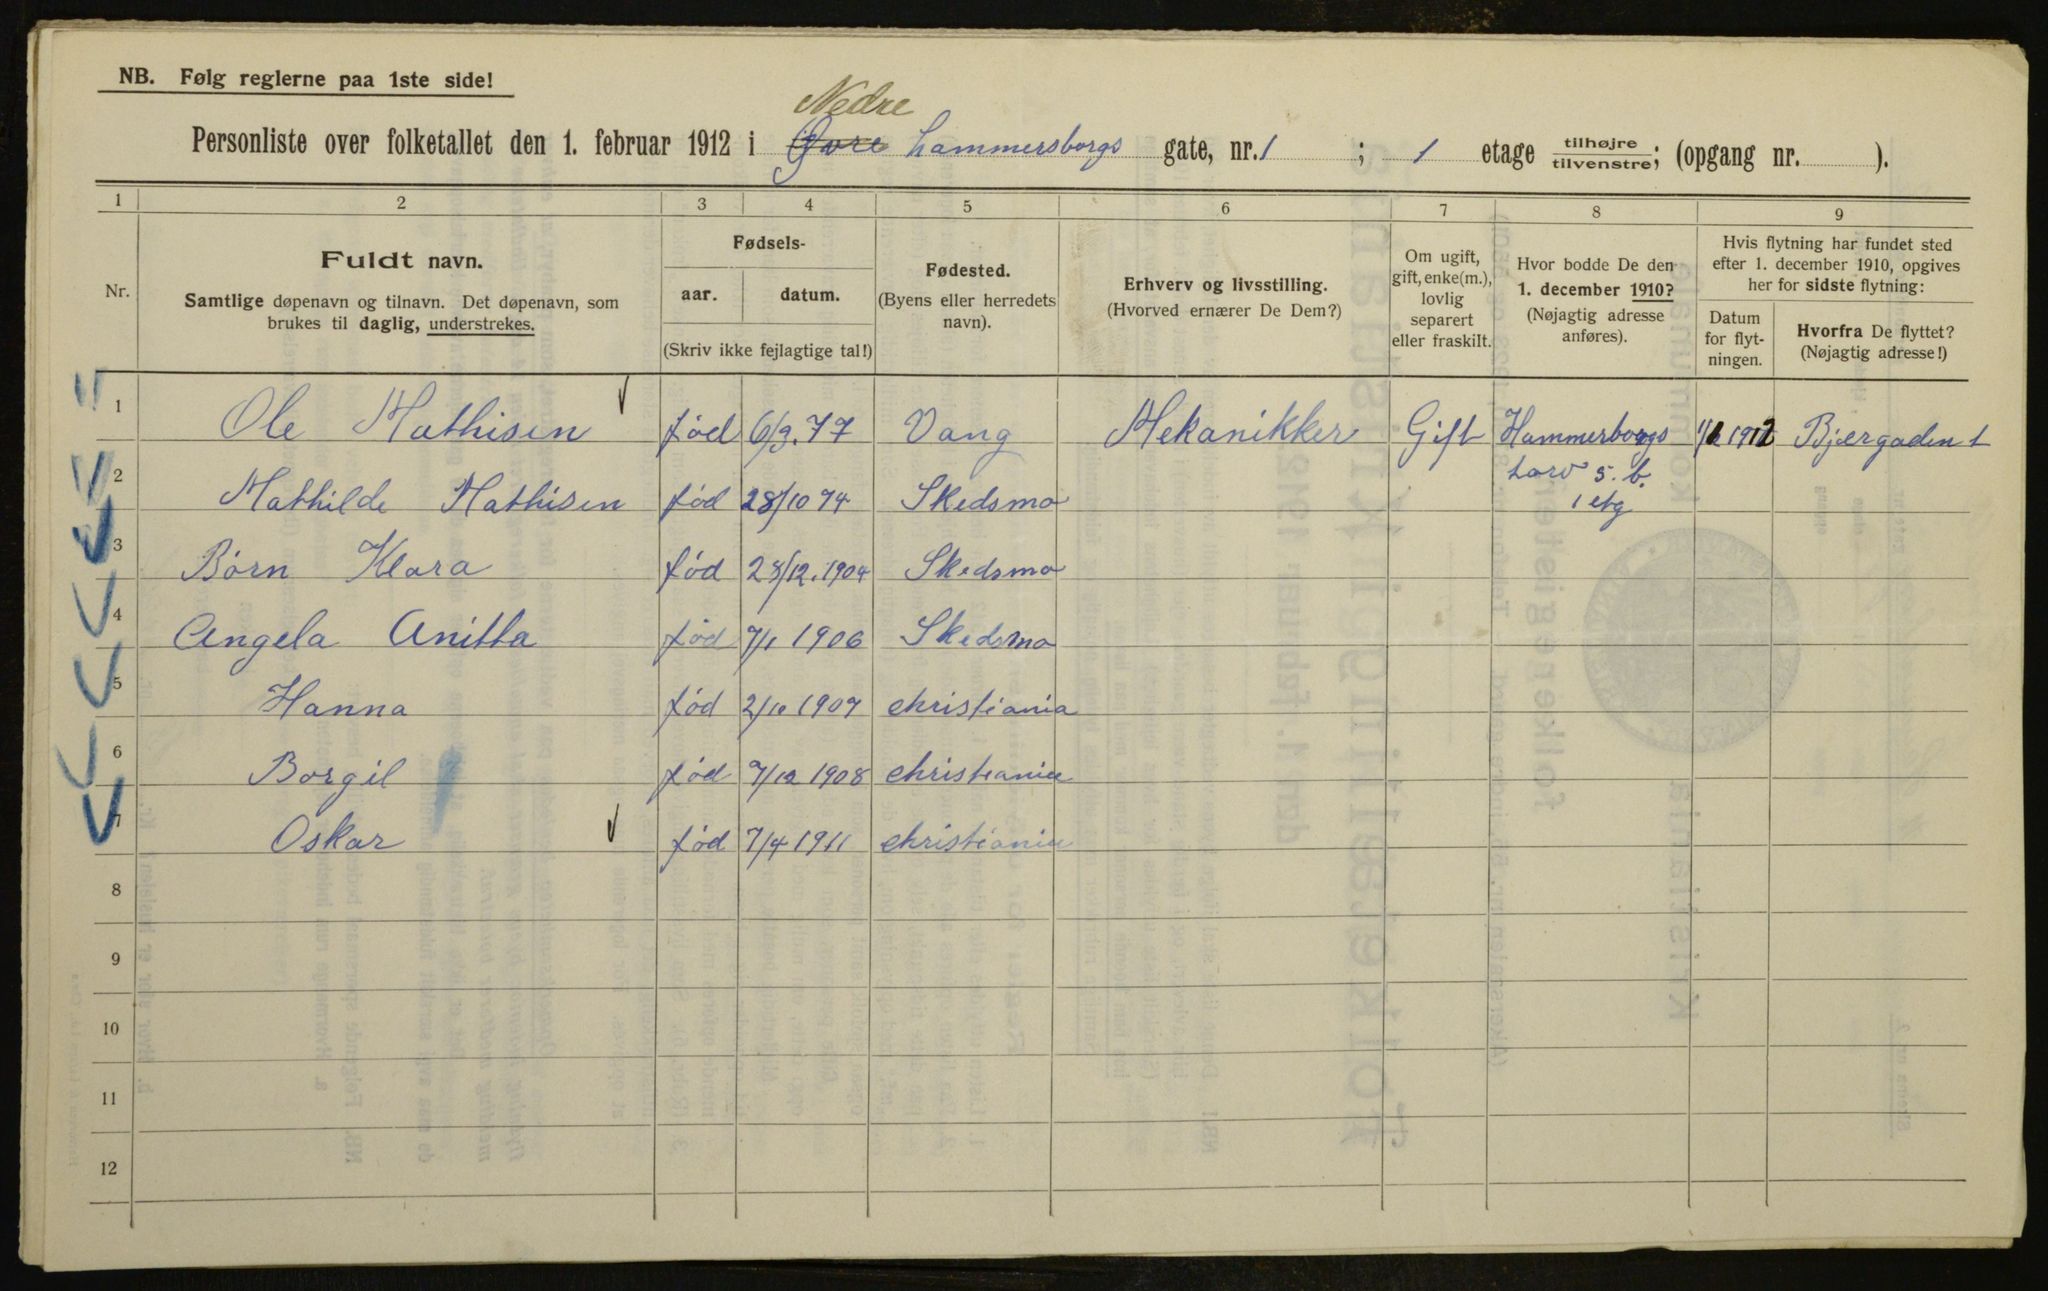 NB. Følg reglerne paa 1ste side!
Nedre
Personliste over folketallet den 1. februar 1912 i Øvre Hammersborgs gate, nr. 1 ; 1 etage tilhøjre tilvenstre; (opgang nr. ).
1 2 3 4 5 6 7 8 9
Nr.
Fuldt navn.
Samtlige døpenavn og tilnavn. Det døpenavn, som
brukes til daglig, understrekes.
Fødsels-
aar. datum.
(Skriv ikke fejlagtige tal!)
Fødested.
(Byens eller herredets
navn).
Erhverv og livsstilling.
(Hvorved ernærer De Dem?)
Om ugift,
gift, enke(m.),
lovlig
separert
eller fraskilt.
Hvor bodde De den
1. december 1910?
(Nøjagtig adresse
anføres).
Hvis flytning har fundet sted
efter 1. december 1910, opgives
her for sidste flytning:
Datum
for flyt-
ningen.
Hvorfra De flyttet?
(Nøjagtig adresse!)
1 Ole Mathisen fød 6/3. 77 Vang Mekanikker Gift Hammerborgs 1912 Bjergaden 1
torv 5. b.
1 etg
2 Mathilde Mathisen fød 28/10 74 Skedsmo
3 Børn Klara fød 28/12. 1904 Skedsmo
4 Angela Anitta fød 7/1 1906 Skedsmo
5 Hanna fød 2/10 1907 christiania
6 Borgil fød 7/12 1908 christiania
7 Oskar fød 7/4 1911 christiania
8
9
10
11
12